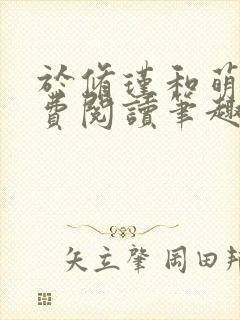 於脩瑾和萌
費閱讀筆趣
矢立肇 岡田邦